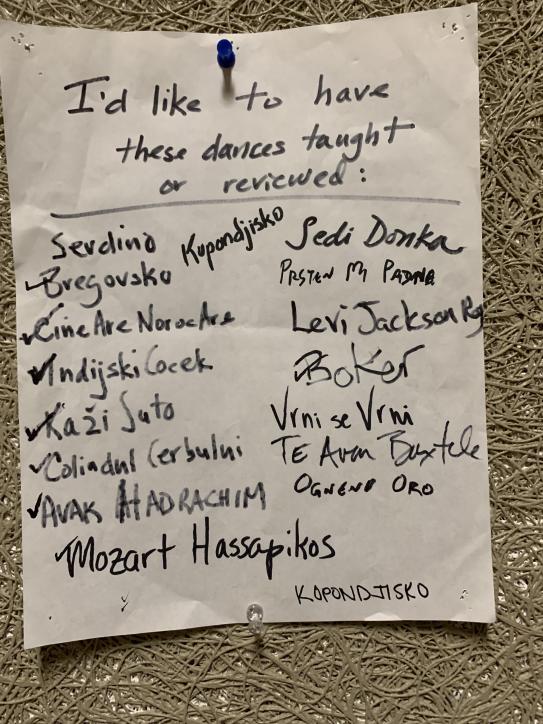 I'd like to have
these dances taught
or reviewed:
Servino
Kupondjisko
Bregovsko
Cine Are Noroc Are
Indijski Cocek
Kaži Suto
Coliadul Cerbului
AVAK HADRACHIM
Mozart Hassapikos
Sedi Donka
PRSTEN MI PADNA
Levi Jackson Rag
Boker
Vrni se Vrni
TE Aven Baxtele
OGNENO ORO
KOPONDJISKO